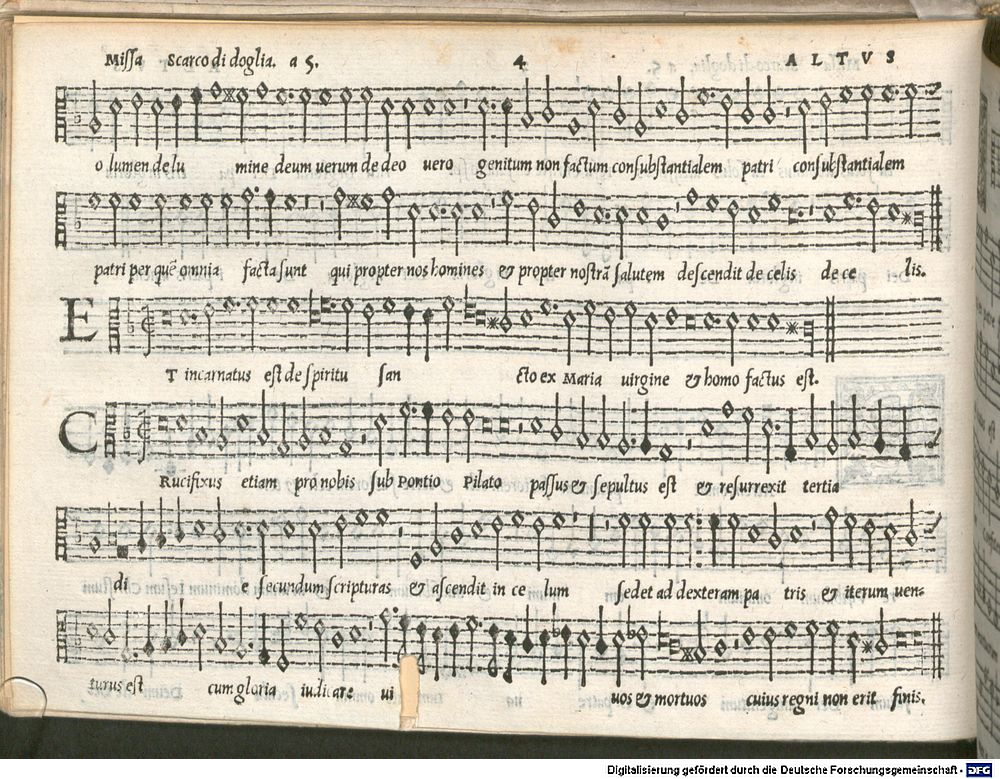 Miſſa Scarco di doglia. a 5. 4 ALTVS
o lumen de lu mine deum uerum de deo uero genitum non factum conſubſtantialem patri conſubſtantialem
patri per quẽ omnia facta ſunt qui propter nos homines & propter noſtrã ſalutem deſcendit de celis de ce lis.
E
T incarnatus eſt de ſpiritu ſan cto ex Maria uirgine & homo factus eſt.
C
Rucifixus etiam pro nobis ſub Pontio Pilato paſſus & ſepultus eſt & reſurrexit tertia
di e ſecundum ſcripturas & aſcendit in ce lum ſedet ad dexteram pa tris & iterum uen=
turus eſt cum gloria iudicare ui uos & mortuos cuius regni non erit finis.
Digitalisierung gefördert durch die Deutsche Forschungsgemeinschaft - DFG